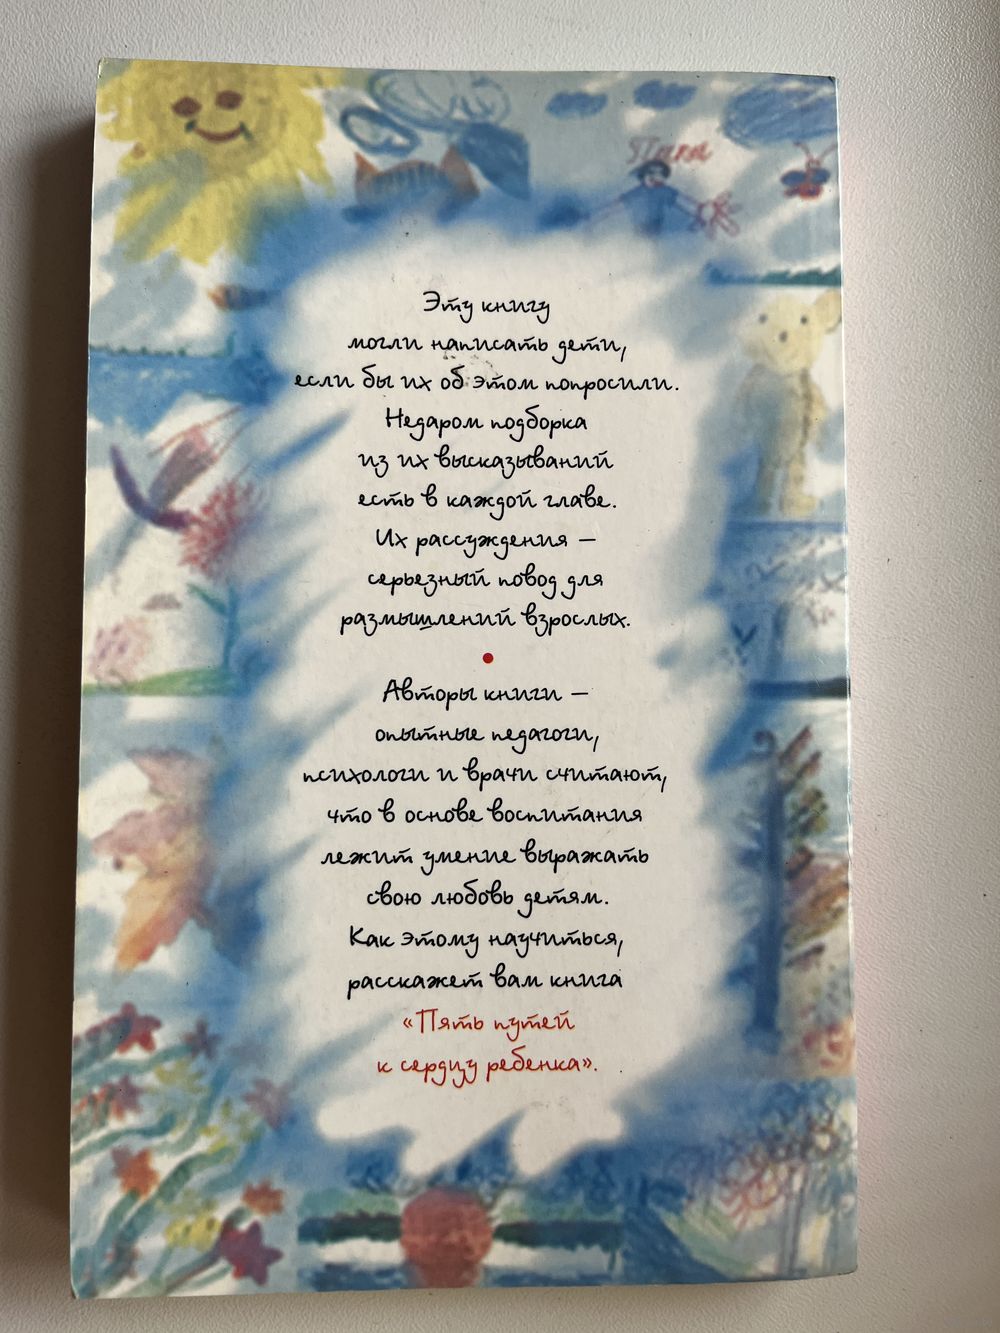 Папа
Эту книгу
могли написать дети,
если бы их об этом попросили.
Недаром подборка
из их высказываний
есть в каждой главе.
Их рассуждения —
серьезный повод для
размышлений взрослых.
Авторы книги —
опытные педагоги,
психологи и врачи считают,
что в основе воспитания
лежит умение выражать
свою любовь детям.
Как этому научиться,
расскажет вам книга
«Пять путей
к сердцу ребенка».